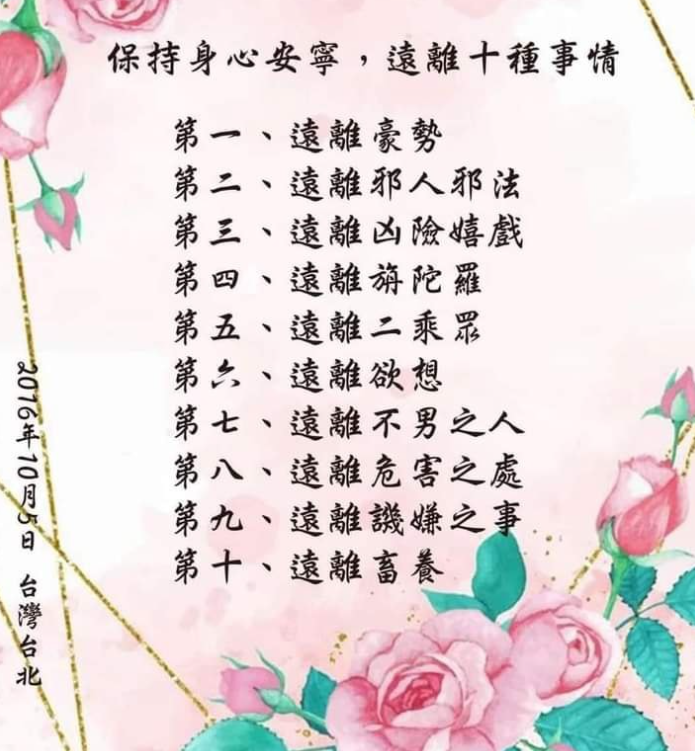 保持身心安寧，遠離十種事情
第一、遠離豪勢
第二、遠離邪人邪法
第三、遠離凶險嬉戲
第四、遠離旃陀羅
第五、遠離二乘眾
第六、遠離欲想
第七、遠離不男之人
第八、遠離危害之處
第九、遠離譏嫌之事
第十、遠離畜養
2016年10月5日 台灣台北